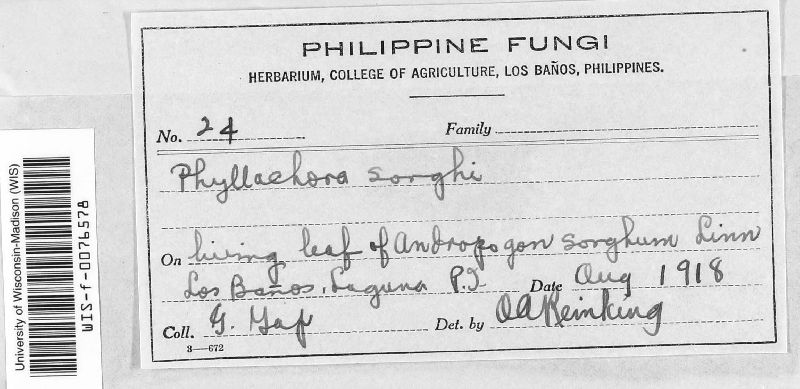 PHILIPPINE FUNGI
HERBARIUM, COLLEGE OF AGRICULTURE, LOS BAÑOS, PHILIPPINES.
No. 24 Family
Phyllachora sorghi
On living leaf of Andropogon sorghum Linn
Los Baños, Laguna P.I Date Aug 1918
Coll. G. Det. by OA Reinking
3—672
University of Wisconsin-Madison (WIS)
WIS-f-0076578